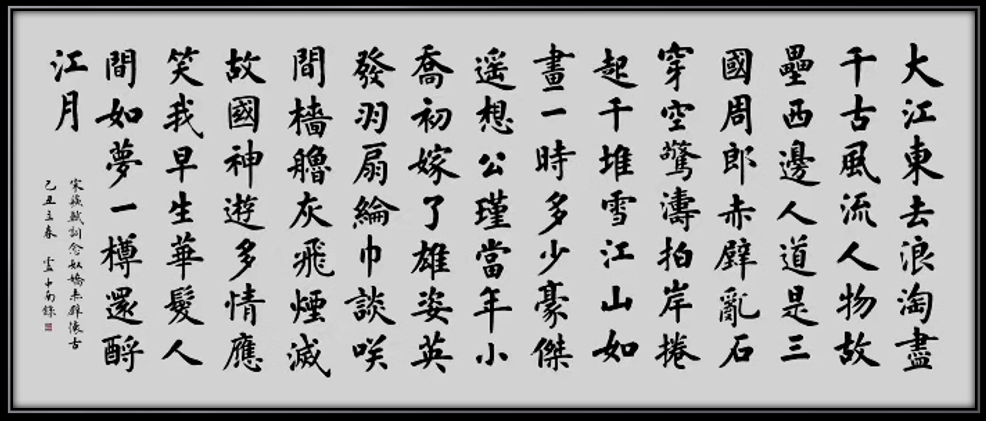 大江東去浪淘盡
千古風流人物故
壘西邊人道是三
國周郎赤壁亂石
穿空驚濤拍岸捲
起千堆雪江山如
畫一時多少豪傑
遥想公瑾當年小
喬初嫁了雄姿英
發羽扇綸巾談咲
間檣艣灰飛煙滅
故國神遊多情應
笑我早生華髮人
間如夢一樽還酹
江月
宋蘇軾詞念奴嬌赤壁懷古
乙丑立春 盧中南錄